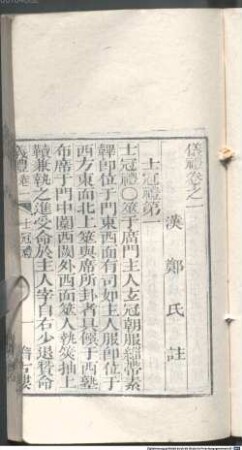 儀禮卷之一
漢 鄭 氏 註
士冠禮第一
士冠禮〇筮于廟門主人玄冠朝服緇帶素
韠即位于門東西面有司如主人服即位于
西方東面北上筮與席所卦者具饌于西塾
布席于門中闑西閾外西面筮人執筴抽上
韇兼執之進受命于主人宰自右少退贊命
儀禮卷一 士冠禮 一